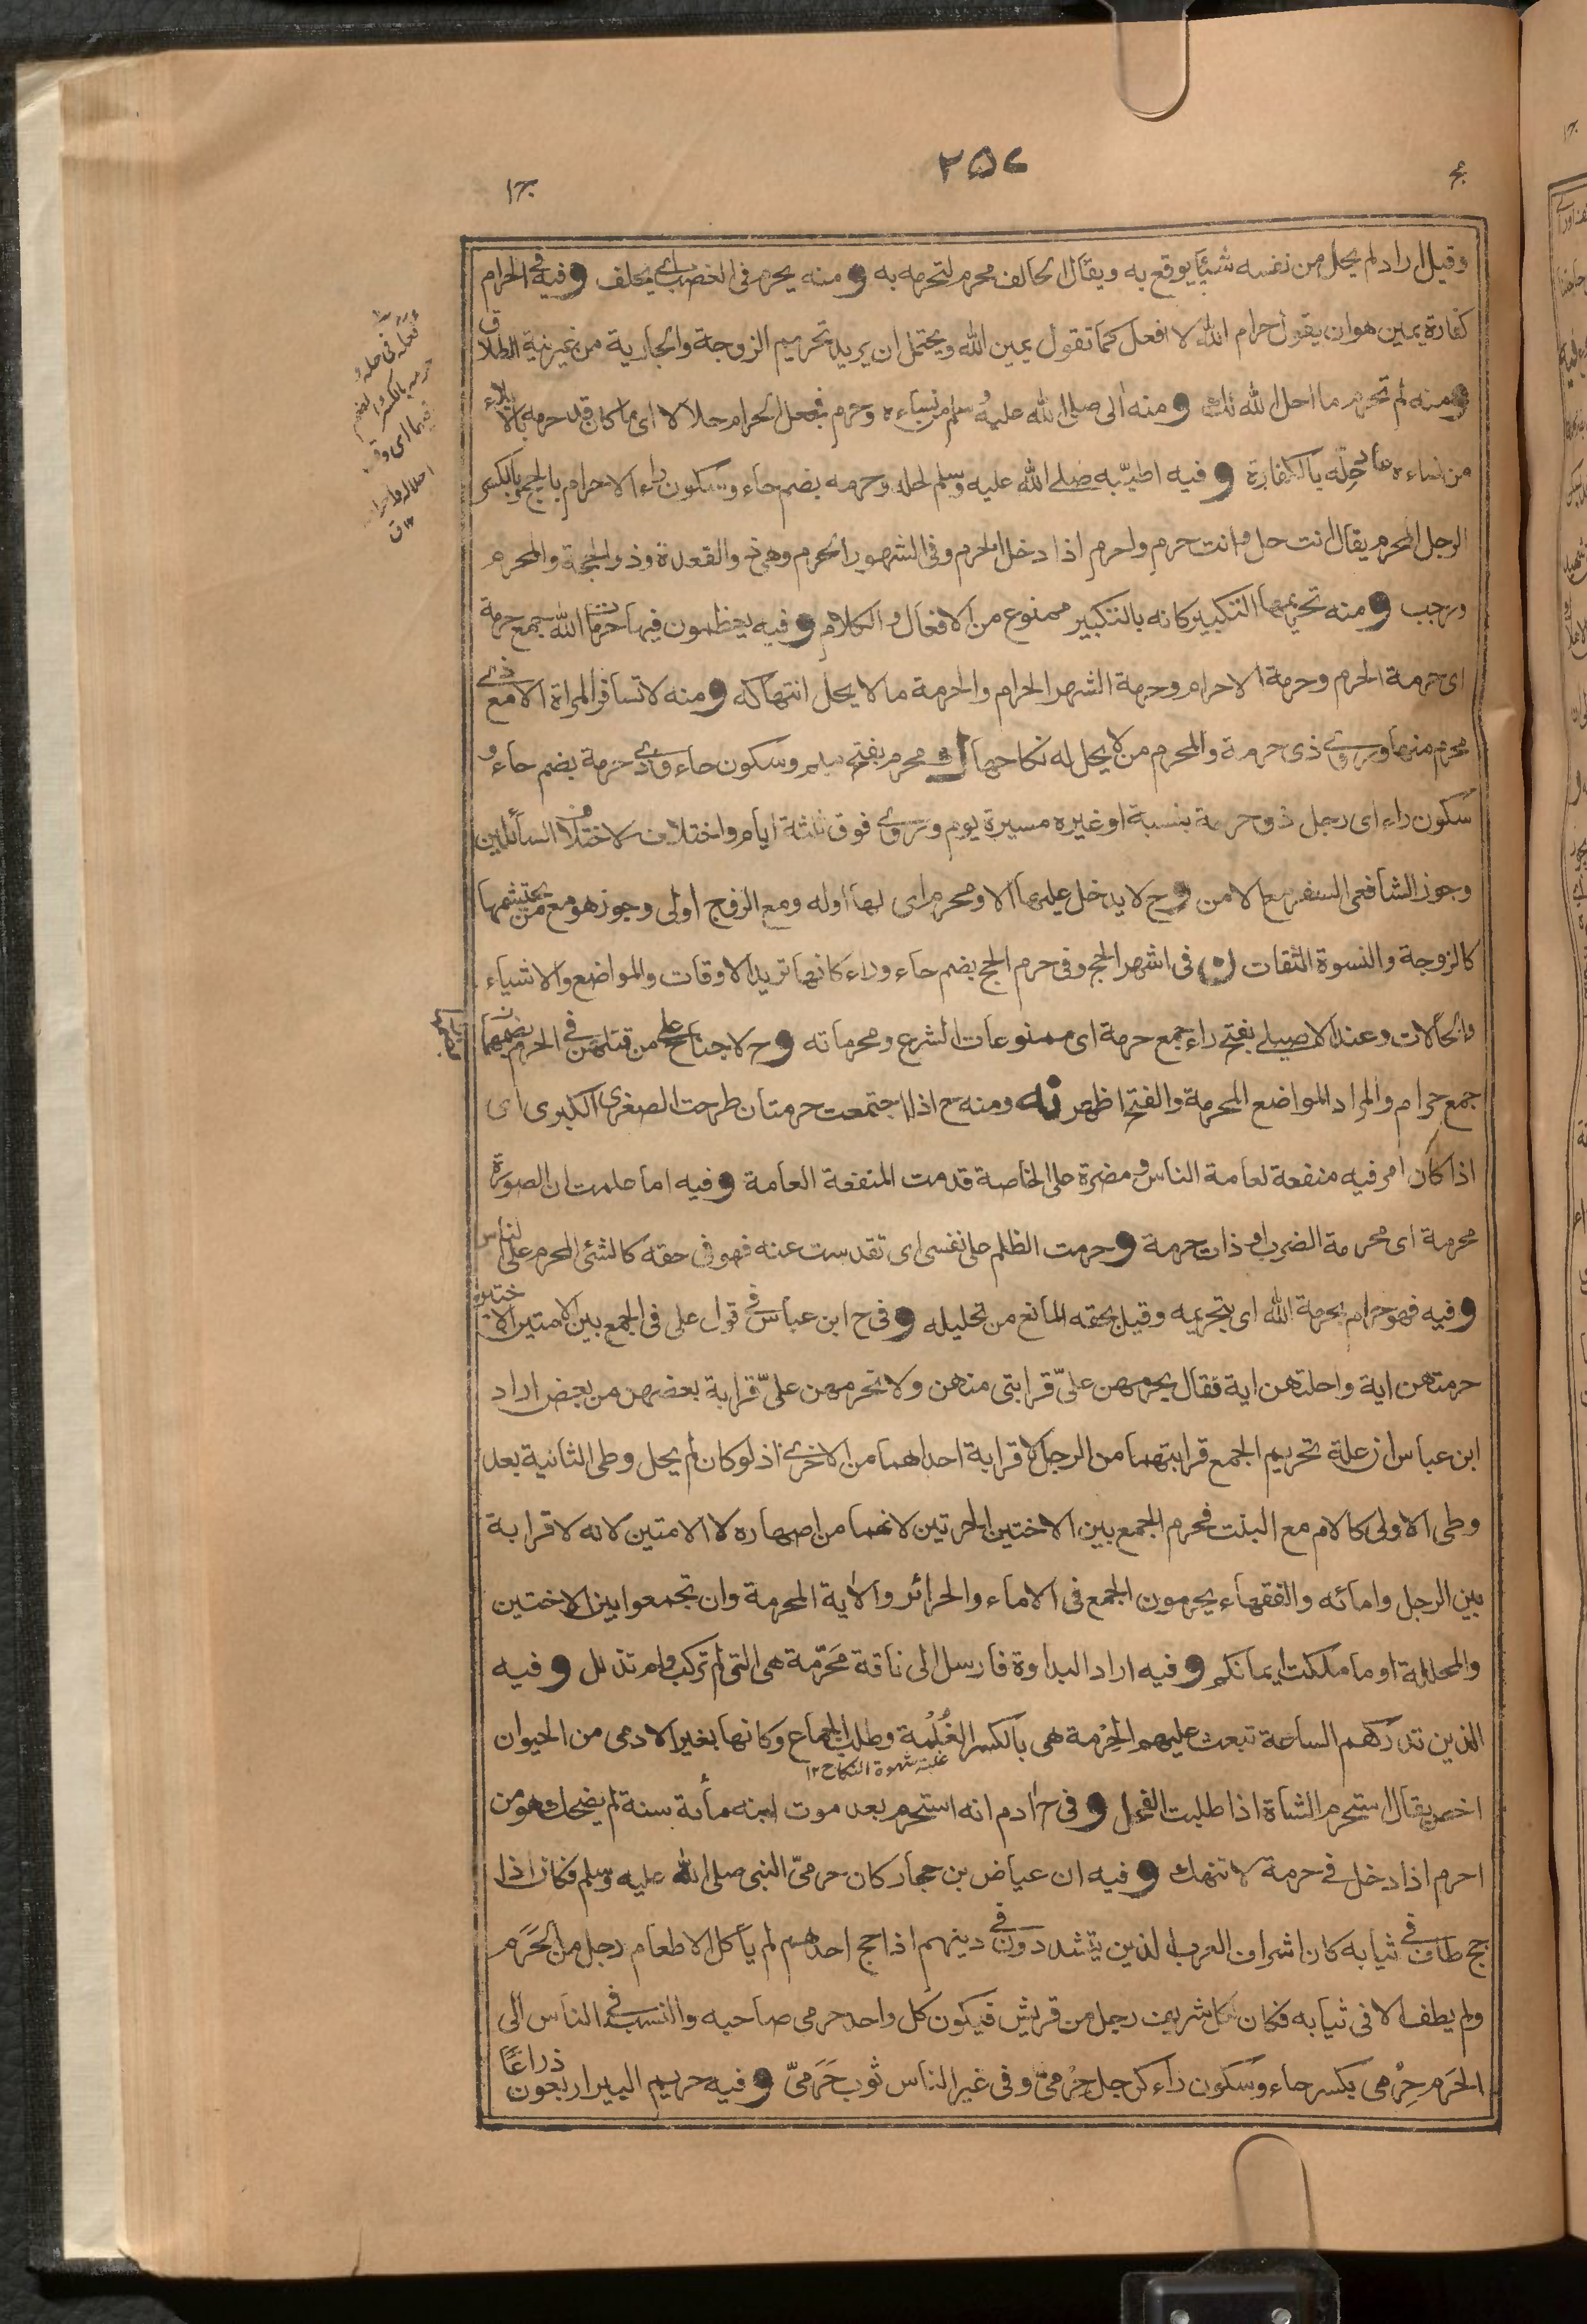 ٢٥٤
وقيل اراد لم يحل من نفسه شيئا يوقع به ويقال لحالف محرم لتحرمه به و منه يحرم فى الغضب اى يحلف و فيه فى الحرام
كفارة يمين هو ان يقول حرام الله لا افعل كما تقول يمين الله ويحتمل ان يريد تحريم الزوجة والجارية من غير نية الطلاق
و منه لم تحرم ما احل الله لك و منه الى صلى الله عليه وسلم من نساءه وحرم فجعل الحرام حلالا اى ما كان قد حرمه بالايلاء
من نساءه عاد حله بالكفارة و فيه اطيّبه صلى الله عليه وسلم لحله وحرمه بضم حاء وسكون راء الاحرام بالحج وبالكسر
الرجل المحرم يقال انت حل وانت حرم واحرم اذا دخل الحرم وفى الشهور الحرم وهى ذو القعدة وذو الحجة والمحرم
ورجب و منه تحريمها التكبير كانه بالتكبير ممنوع من الافعال والكلام و فيه يعظمون فيها حرمات الله جمع حرمة
اى حرمة الحرم وحرمة الاحرام وحرمة الشهر الحرام والحرمة ما لا يحل انتهاكه و منه لا تسافر المراة الا مع ذى
محرم منها وروى ذى حرمة والمحرم من لا يحل له نكاحها ك محرم بفتح ميم وسكون حاء وذى حرمة بضم حاء و
سكون راء اى رجل ذو حرمة بنسبة او غيره مسيرة يوم وروى فوق ثلثة ايام واختلاف لاختلاف السائلين
وجوز الشافعى السفر مع الامن و ح لا يدخل عليها الا ومحرم اى لها او له ومع الزوج اولى وجوز هو مع من يحتشمها
كالزوجة والنسوة الثقات ن فى اشهر الحج وفى حرم الحج بضم حاء وراء كانها تريد الاوقات والمواضع والاشياء
والحالات وعند الاصيلى بفتح راء جمع حرمة اى ممنوعات الشرع ومحرماته و ح لا جناح على من قتلهن فى الحرم بضمهما
جمع حرام والمراد المواضع المحرمة والفتح اظهر نه ومنه ح اذا اجتمعت حرمتان طرحت الصغرى الكبرى اى
اذا كان امر فيه منفعة لعامة الناس ومضرة على الخاصة قدمت المنفعة العامة و فيه اما علمت ان الصورة
محرمة اى محرمة الضرب او ذات حرمة و حرمت الظلم على نفسى اى تقدست عنه فهو فى حقه كالشئ المحرم على الناس
و فيه فهو حرام بحرمة الله اى بتحريمه وقيل بحقه المانع من تحليله و فى ح ابن عباس فى قول على فى الجمع بين الامتين الاختين
حرمتهن اية واحلتهن اية فقال يحرمهن علىّ قرابتى منهن ولا تحرمهن علىّ قرابة بعضهن من بعض اراد
ابن عباس ان علة تحريم الجمع قرابتهما من الرجل لا قرابة احداهما من الاخرى اذ لو كان لم يحل وطى الثانية بعد
وطى الاولى كالام مع البنت فحرم الجمع بين الاختين الحرتين لانهما من اصهاره لا الامتين لانه لا قرابة
بين الرجل وامائه والفقهاء يحرمون الجمع فى الاماء والحرائر والاية المحرمة وان تجمعوا بين الاختين
والمحللة او ما ملكت ايمانكم و فيه اراد البداوة فارسل الى ناقة مَحَرّمة هى التى لم تركب ولم تذلل و فيه
الذين تدركهم الساعة تبعث عليهم الحِرْمة هى بالكسر الغُلْمة وطلب الجماع وكانها بغير الادمى من الحيوان
غلبة شهوة النكاح ١٢
اخص يقال استحرم الشاة اذا طلبت الفحل و فى ح ادم انه استحرم بعد موت ابنه مأئة سنة لم يضحك وهو من
احرم اذا دخل فى حرمة لا تنهك و فيه ان عياض بن حمار كان حرمىّ النبى صلى الله عليه وسلم فكان اذا
حج طاف فى ثيابه كان اشراف العرب الذين يتشددون فى دينهم اذا حج احدهم لم يأكل الا طعام رجل من الحَرَم
ولم يطف الا فى ثيابه فكان لكل شريف رجل من قريش فيكون كل واحد حرمى صاحبه والنسب فى الناس الى
الحَرَم حِرْمى بكسر حاء وسكون راء كرجل حِرْمىّ وفى غير الناس ثوب حَرَمىّ و فيه حريم البير اربعون ذراعًا